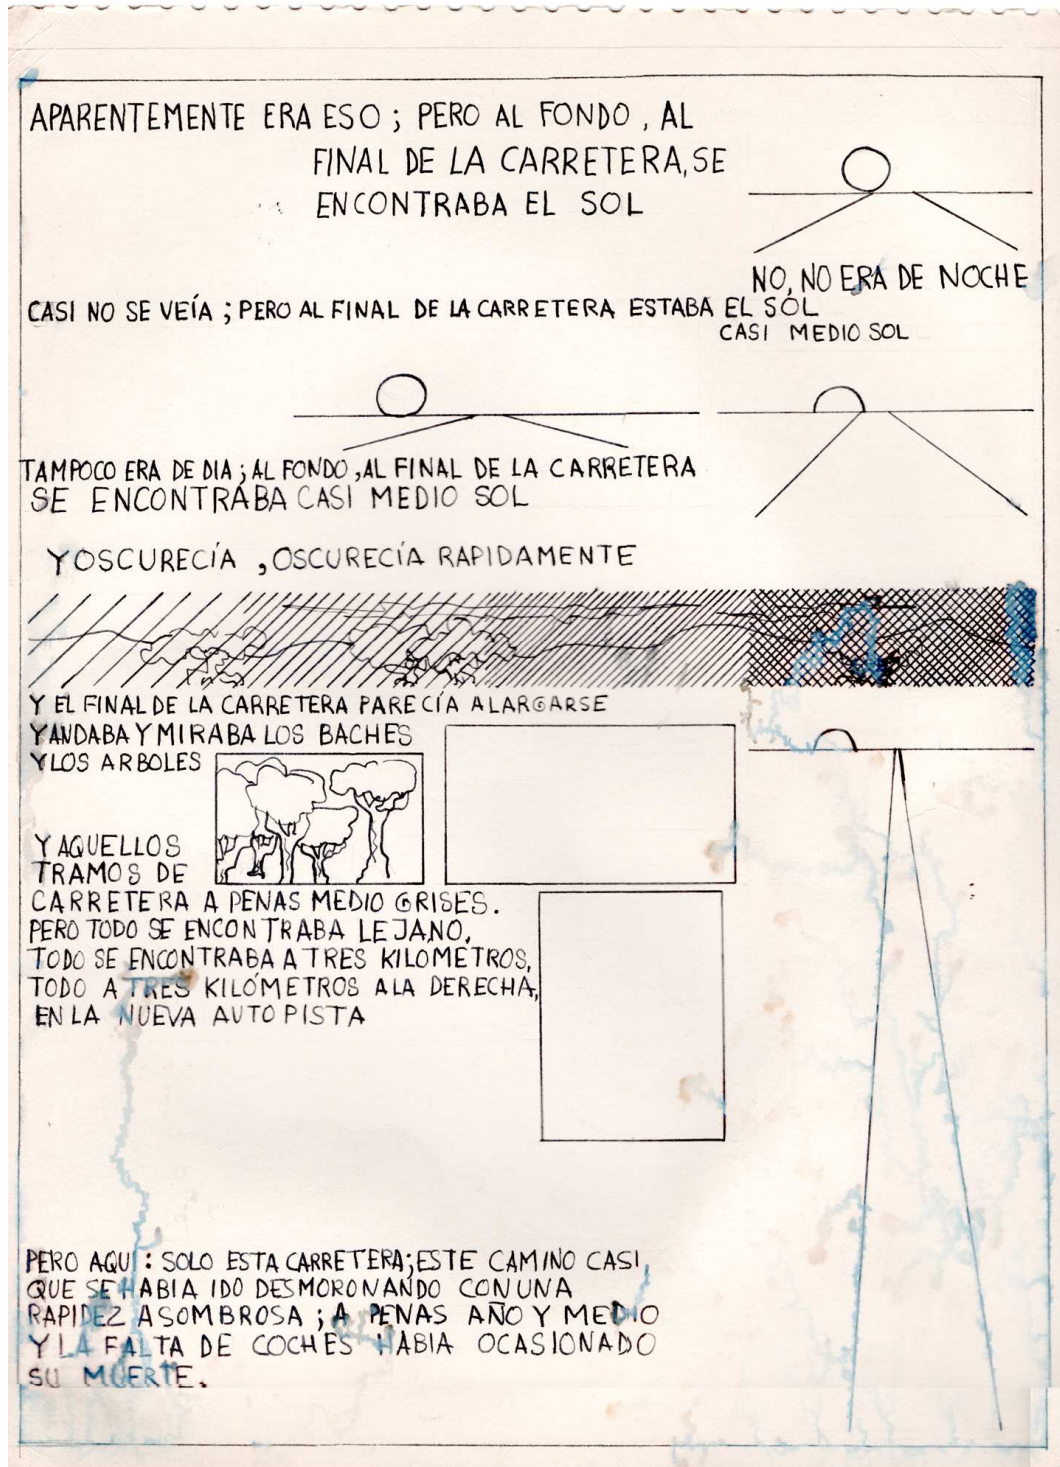 APARENTEMENTE ERA ESO ; PERO AL FONDO , AL
FINAL DE LA CARRETERA, SE
ENCONTRABA EL SOL
NO, NO ERA DE NOCHE
CASI NO SE VEÍA ; PERO AL FINAL DE LA CARRETERA ESTABA EL SOL
CASI MEDIO SOL
TAMPOCO ERA DE DIA ; AL FONDO , AL FINAL DE LA CARRETERA
SE ENCONTRABA CASI MEDIO SOL
Y OSCURECÍA , OSCURECÍA RAPIDAMENTE
Y EL FINAL DE LA CARRETERA PARECÍA ALARGARSE
Y ANDABA Y MIRABA LOS BACHES
Y LOS ARBOLES
Y AQUELLOS
TRAMOS DE
CARRETERA A PENAS MEDIO GRISES.
PERO TODO SE ENCONTRABA LEJANO,
TODO SE ENCONTRABA A TRES KILOMETROS,
TODO A TRES KILÓMETROS A LA DERECHA,
EN LA NUEVA AUTOPISTA
PERO AQUI : SOLO ESTA CARRETERA; ESTE CAMINO CASI,
QUE SE HABIA IDO DESMORONANDO CON UNA
RAPIDEZ ASOMBROSA ; A PENAS AÑO Y MEDIO
Y LA FALTA DE COCHES HABIA OCASIONADO
SU MUERTE.